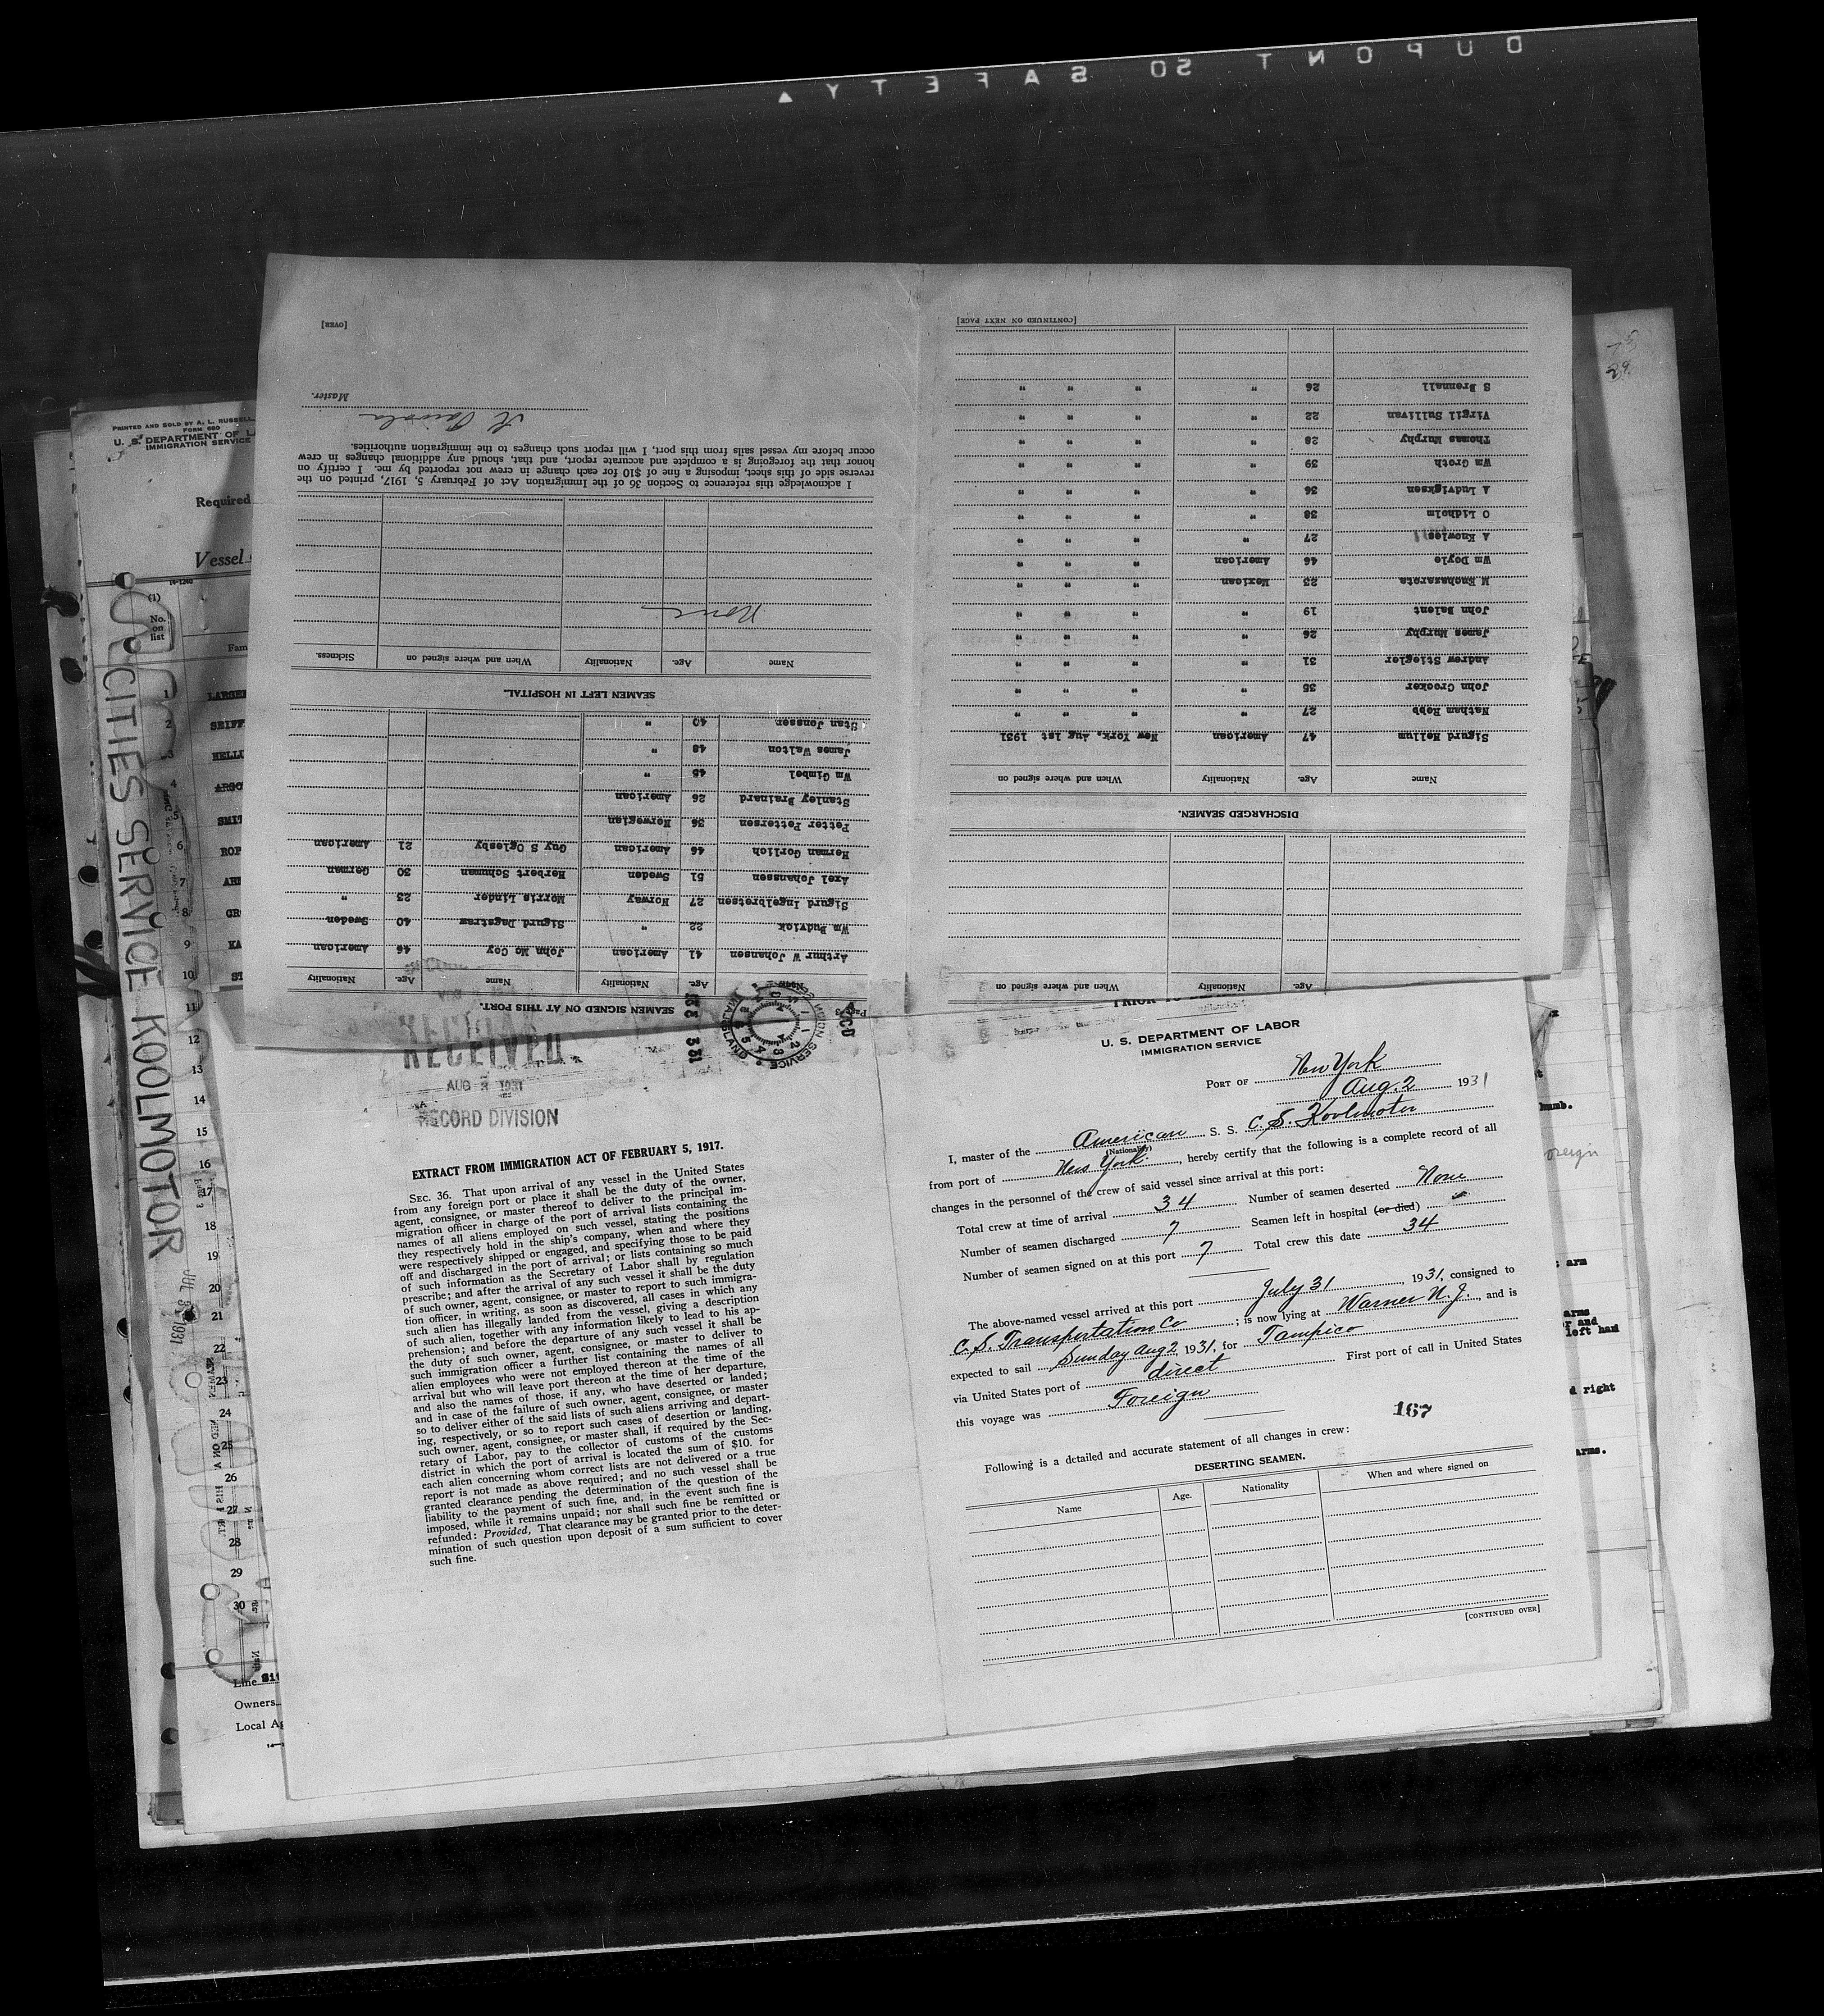 DUPONT SO SAFETY
PRINTED AND SOLD BY A. L. RUSSELL,
FORM 680
U. S. DEPARTMENT OF LA
IMMIGRATION SERVICE
Required
Vessel
(1)
No.
on
list
Fam
1 LARGEN
2 SEIFF
3 HELLU
4 ARGO
5 SMIT
6 ROP
7
8
9 KA
10
11
12
13
14
15
16
17
18
19
20
21
22
23
24
25
26
27
28
29
30
Line
Owners
Local Ag
CITIES SERVICE KOOLMOTOR
JUL 31 1931
SEAMEN SIGNED ON AT THIS PORT.
Name Age. Nationality Name Age. Nationality
Arthur W Johansen 41 American John Mc Coy 46 American
Wm Pudvick 22 " Sigurd Dagstraw 40 Sweden
Sigurd Ingelbretsen 27 Norway Morris Linder 23 "
Axel Johanssen 51 Sweden Herbert Schuman 30 German
Herman Gorlich 46 American Guy S Oglesby 21 American
Petter Pettersen 36 Norwegian
Stanley Brainard 26 American
Wm Gimbel 45 "
James Walton 48 "
Stan Jonsson 40 "
SEAMEN LEFT IN HOSPITAL.
Name Age. Nationality When and where signed on Sickness.
None
I acknowledge this reference to Section 36 of the Immigration Act of February 5, 1917, printed on the
reverse side of this sheet, imposing a fine of $10 for each change in crew not reported by me. I certify on
honor that the foregoing is a complete and accurate report, and that, should any additional changes in crew
occur before my vessel sails from this port, I will report such changes to the immigration authorities.
Master.
[OVER]
Age. Nationality When and where signed on
DISCHARGED SEAMEN.
Name Age. Nationality When and where signed on
Sigurd Hellum 47 American New York, Aug 1st 1931
Nathan Robb 27 " " " "
John Crocker 35 " " " "
Andrew Stiegler 31 " " " "
James Murphy 26 " " " "
John Balent 19 " " " "
M Enchazarota 23 Mexican " " "
Wm Doyle 46 American " " "
A Knowles 27 " " " "
O Lidholm 38 " " " "
A Ludvigksen 36 " " " "
Wm Groth 39 " " " "
Thomas Murphy 28 " " " "
Virgil Sullivan 22 " " " "
S Brennall 26 " " " "
[CONTINUED ON NEXT PAGE]
RECEIVED
AUG 3 1931
RECORD DIVISION
EXTRACT FROM IMMIGRATION ACT OF FEBRUARY 5, 1917.
SEC. 36. That upon arrival of any vessel in the United States
from any foreign port or place it shall be the duty of the owner,
agent, consignee, or master thereof to deliver to the principal im-
migration officer in charge of the port of arrival lists containing the
names of all aliens employed on such vessel, stating the positions
they respectively hold in the ship's company, when and where they
were respectively shipped or engaged, and specifying those to be paid
off and discharged in the port of arrival; or lists containing so much
of such information as the Secretary of Labor shall by regulation
prescribe; and after the arrival of any such vessel it shall be the duty
of such owner, agent, consignee, or master to report to such immigra-
tion officer, in writing, as soon as discovered, all cases in which any
such alien has illegally landed from the vessel, giving a description
of such alien, together with any information likely to lead to his ap-
prehension; and before the departure of any such vessel it shall be
the duty of such owner, agent, consignee, or master to deliver to
such immigration officer a further list containing the names of all
alien employees who were not employed thereon at the time of the
arrival but who will leave port thereon at the time of her departure,
and also the names of those, if any, who have deserted or landed;
and in case of the failure of such owner, agent, consignee, or master
so to deliver either of the said lists of such aliens arriving and depart-
ing, respectively, or so to report such cases of desertion or landing,
such owner, agent, consignee, or master shall, if required by the Sec-
retary of Labor, pay to the collector of customs of the customs
district in which the port of arrival is located the sum of $10. for
each alien concerning whom correct lists are not delivered or a true
report is not made as above required; and no such vessel shall be
granted clearance pending the determination of the question of the
liability to the payment of such fine, and, in the event such fine is
imposed, while it remains unpaid; nor shall such fine be remitted or
refunded: Provided, That clearance may be granted prior to the deter-
mination of such question upon deposit of a sum sufficient to cover
such fine.
U. S. DEPARTMENT OF LABOR
IMMIGRATION SERVICE
PORT OF New York
Aug. 2 1931
I, master of the American S. S. C. S. Koolmotor
(Nationality)
from port of New York, hereby certify that the following is a complete record of all
changes in the personnel of the crew of said vessel since arrival at this port:
Total crew at time of arrival 34 Number of seamen deserted None
Number of seamen discharged 7 Seamen left in hospital (or died)
Number of seamen signed on at this port 7 Total crew this date 34
The above-named vessel arrived at this port July 31, 1931, consigned to
C. S. Transportation Co; is now lying at Warner N. J., and is
expected to sail Sunday Aug 2, 1931, for Tampico
via United States port of direct First port of call in United States
this voyage was Foreign
167
Following is a detailed and accurate statement of all changes in crew:
DESERTING SEAMEN.
Name Age. Nationality When and where signed on
[CONTINUED OVER]
humb.
oreign
arm
arms
r and
left had
d right
arms.